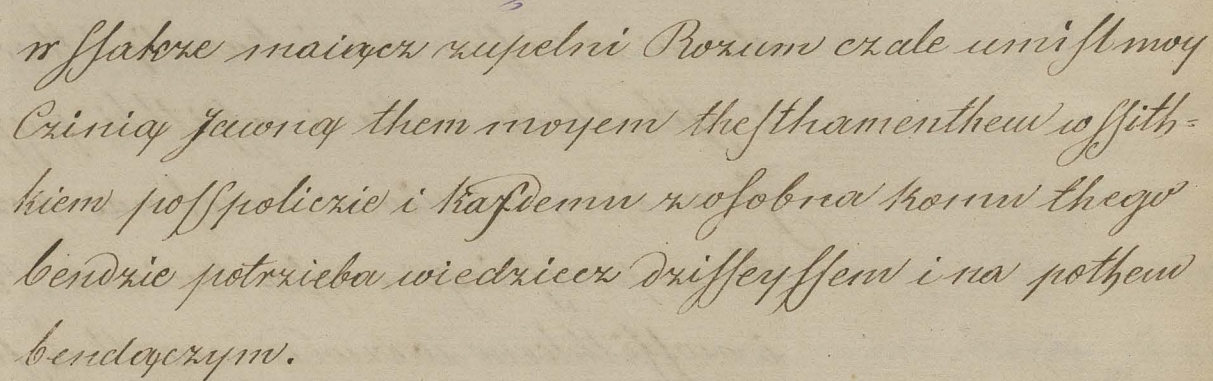 w ſſakze maiącz zupelni Rozum czale umiſl moy
Czinią Jawną them moyem theſthamenthem wſſith=
kiem poſſpoliczie i kaſdemu z oſobna komu thego
bendzie potrzieba wiedziecz dziſſeyſſem i na pothem
bendączym.